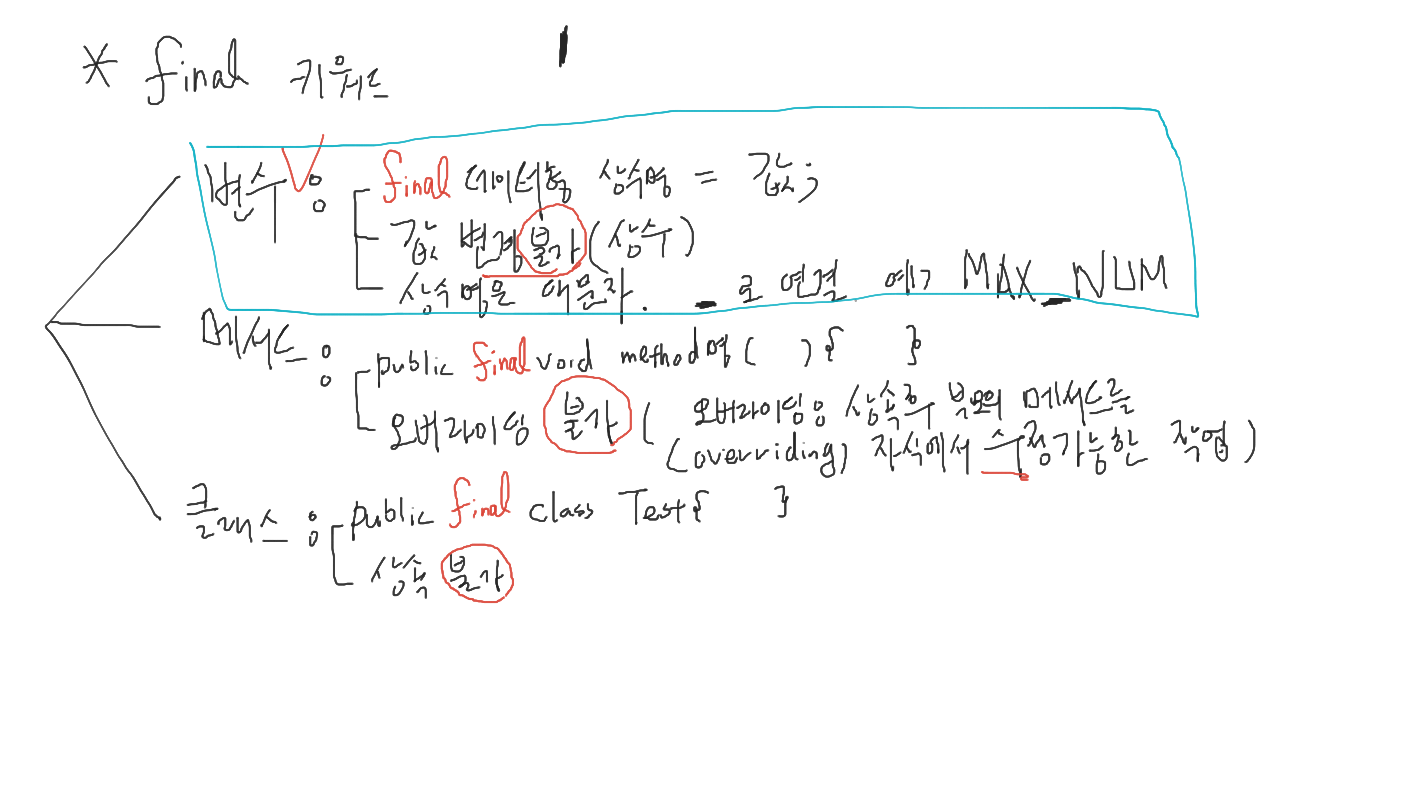 * final 키워드
변수 : final 데이터형 상수명 = 값;
값 변경 불가 (상수)
상수 명은 대문자. _ 로 연결 예) MAX_NUM
메서드 : public final void method명( ) { }
오버라이딩 불가 ( 오버라이딩은 상속후 부모의 메서드를
(overriding) 자식에서 수정가능한 작업 )
클래스 : public final class Test{ }
상속 불가